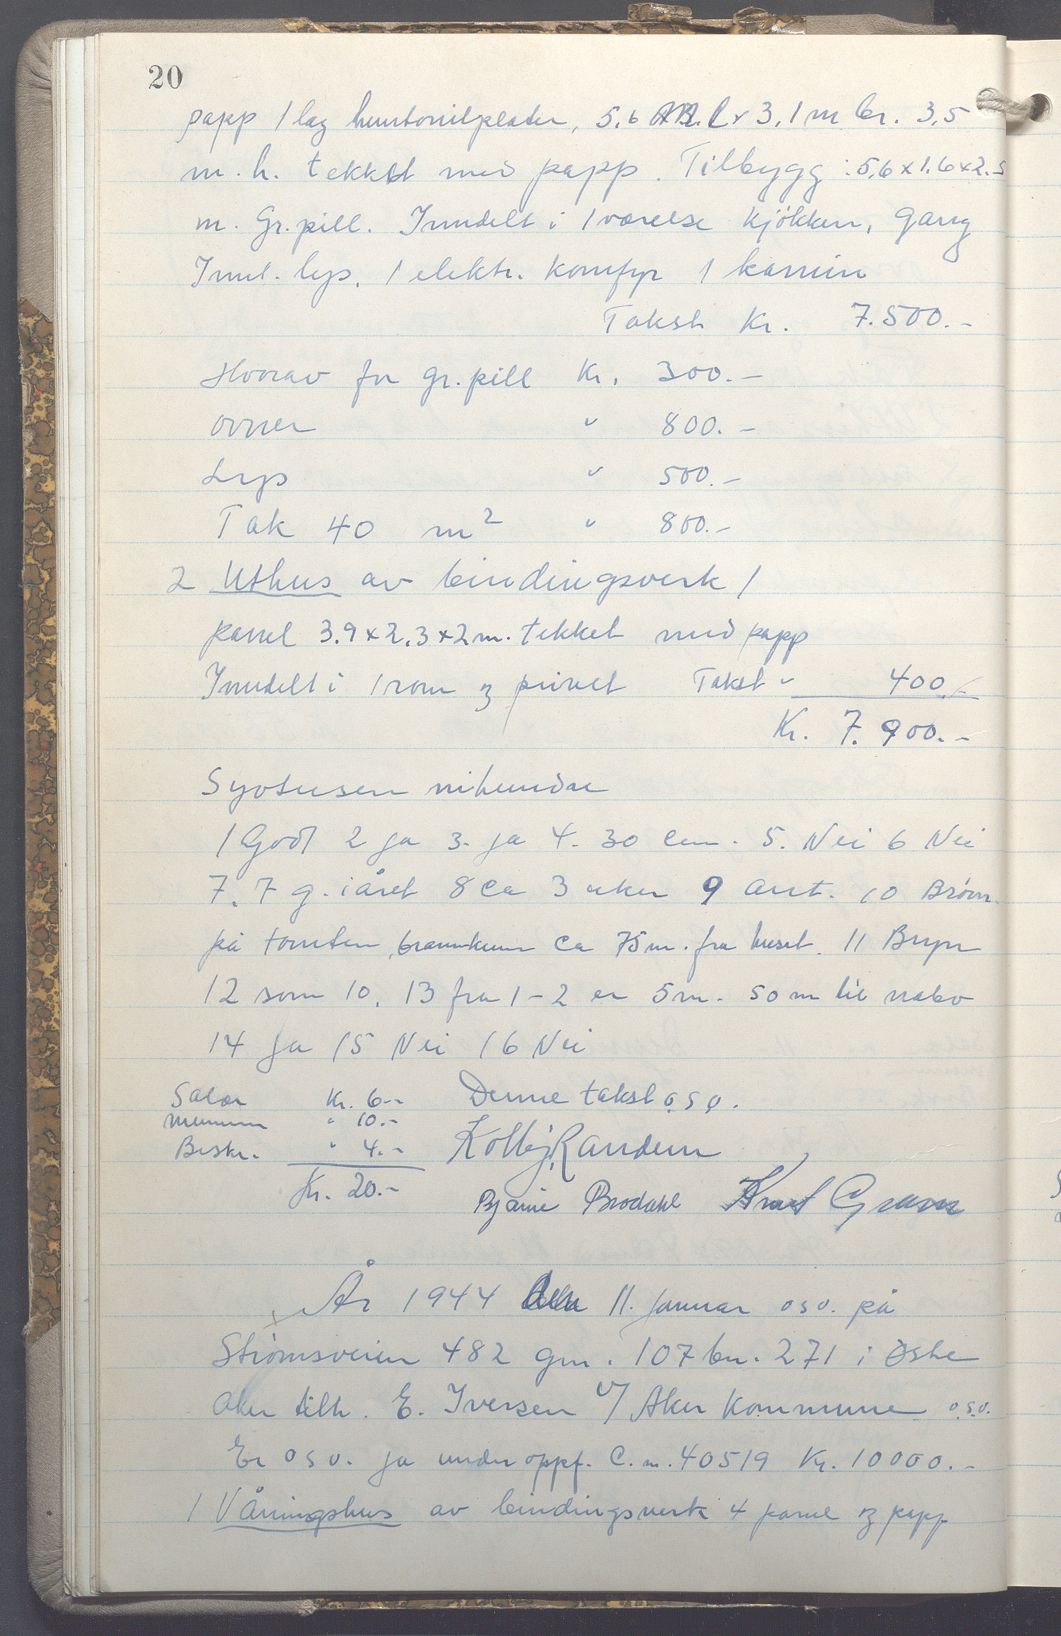 20
papp 1 lag huntonitplater, 5,6 m. l x 3,1 m br. 3,5
m. h. tekket med papp. Tilbygg: 5,6 x 1,6 x 2.5
m. Gr. pill. Inndelt i 1 værelse kjøkken, gang
Innl. lys, 1 elektr. komfyr 1 kamin
Takst Kr. 7.500.-
Hvorav for gr. pill Kr. 300.-
ovner " 800.-
Lys " 500.-
Tak 40 m2 " 800.-
2 Uthus av bindingsverk 1
panel 3.9 x 2.3 x 2 m. tekket med papp
Inndelt i 1 rom og privet Takst " 400.-
Kr. 7.900.-
Syvtusen nihundre
1 Godt 2 ja 3. ja 4. 30 cm. 5. Nei 6 Nei
7. 7 g. i året 8 ca 3 uker 9 ant. 10 Brønn
på tomten, brannkum ca 75 m. fra huset. 11 Bryn
12 som 10, 13 fra 1-2 er 5 m. 50 m til nabo
14 Ja 15 Nei 16 Nei
Salær Kr. 6.- Denne takst o. s. v.
" 10.-
Beskr. " 4.- Kolbj. Randem
Kr. 20.-
Bjarne Brodahl Knut Gram
År 1944 den 11. Januar o s v. på
Strømsveien 482 gn. 107 bn. 271 i Østre
Aker tilh. E. Iversen v/ Aker kommune o.s.v.
Er o s v. ja under oppf. C. m. 40519 Kr. 10000.-
1 Våningshus av bindingsverk 4 panel og papp